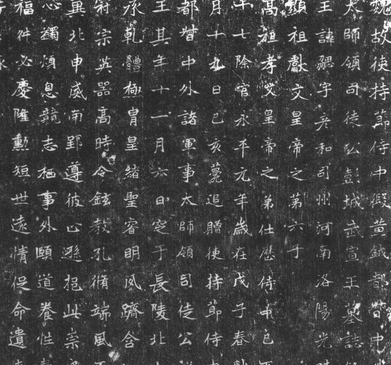 魏故使持節侍中假黃鉞都督中
太師領司徒公彭城武宣王墓誌
王諱勰字彥和司州河南洛陽光
顯祖獻文皇帝之第六子
高祖孝文皇帝之弟仕歷侍中已
十七除官永平元年歲在戊子春
月十九日己亥薨追贈使持節侍
都督中外諸軍事太師領司徒公
王其年十一月六日窆于長陵北
承乾體極胄皇緒聖睿明夙躋含
冠宗英器高時令鉉教孔脩端風
冀北申威南郢遵彼止遜挹此崇
心蠲煩息競志栖事外頤道養性
福舛必慶隆勳短世遠情促命遺